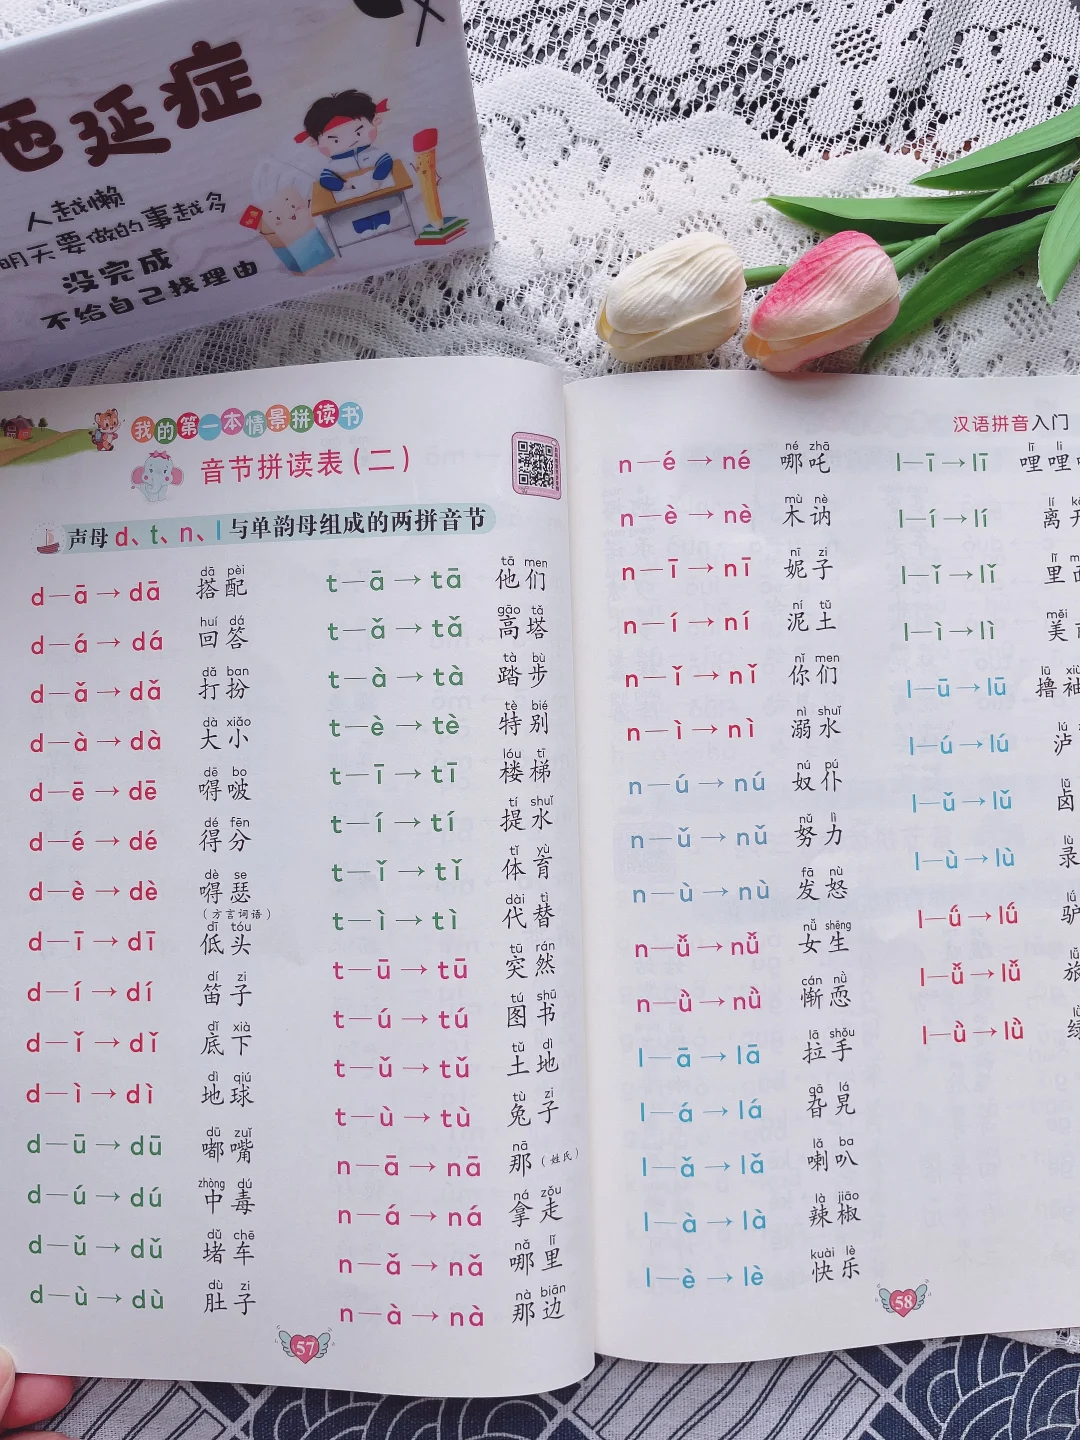 延症
人越懒
明天要做的事越多
没完成
不给自己找理由
我的第一本情景拼读书
音节拼读表(二)
声母 d、t、n、l 与单韵母组成的两拼音节
dā pèi
d—ā→dā 搭配
huí dá
d—á→dá 回答
dǎ ban
d—ǎ→dǎ 打扮
dà xiǎo
d—à→dà 大小
dē bo
d—ē→dē 嘚啵
dé fēn
d—é→dé 得分
dè se
d—è→dè 嘚瑟
(方言词语)
dī tóu
d—ī→dī 低头
dí zi
d—í→dí 笛子
dǐ xià
d—ǐ→dǐ 底下
dì qiú
d—ì→dì 地球
dū zuǐ
d—ū→dū 嘟嘴
zhòng dú
d—ú→dú 中毒
dǔ chē
d—ǔ→dǔ 堵车
dù zi
d—ù→dù 肚子
tā men
t—ā→tā 他们
gāo tǎ
t—ǎ→tǎ 高塔
tà bù
t—à→tà 踏步
tè bié
t—è→tè 特别
lóu tī
t—ī→tī 楼梯
tí shuǐ
t—í→tí 提水
tǐ yù
t—ǐ→tǐ 体育
dài tì
t—ì→tì 代替
tū rán
t—ū→tū 突然
tú shū
t—ú→tú 图书
tǔ dì
t—ǔ→tǔ 土地
tù zi
t—ù→tù 兔子
nā
n—ā→nā 那(姓氏)
ná zǒu
n—á→ná 拿走
nǎ lǐ
n—ǎ→nǎ 哪里
nà biān
n—à→nà 那边
57
汉语拼音入门
né zhā
n—é→né 哪吒
mù nè
n—è→nè 木讷
nī zi
n—ī→nī 妮子
ní tǔ
n—í→ní 泥土
nǐ men
n—ǐ→nǐ 你们
nì shuǐ
n—ì→nì 溺水
nú pú
n—ú→nú 奴仆
nǔ lì
n—ǔ→nǔ 努力
fā nù
n—ù→nù 发怒
nǚ shēng
n—ǚ→nǚ 女生
cán nǜ
n—ǜ→nǜ 惭恧
lā shǒu
l—ā→lā 拉手
gā lá
l—á→lá 旮旯
lǎ ba
l—ǎ→lǎ 喇叭
là jiāo
l—à→là 辣椒
kuài lè
l—è→lè 快乐
lī li
l—ī→lī 哩哩
lí
l—í→lí 离开
lǐ
l—ǐ→lǐ 里面
měi
l—ì→lì 美
lū xiù
l—ū→lū 撸袖
lú
l—ú→lú 泸
lǔ
l—ǔ→lǔ 卤
lù
l—ù→lù 录
lǘ
l—ǘ→lǘ 驴
lǚ
l—ǚ→lǚ 旅
lǜ
l—ǜ→lǜ 绿
58